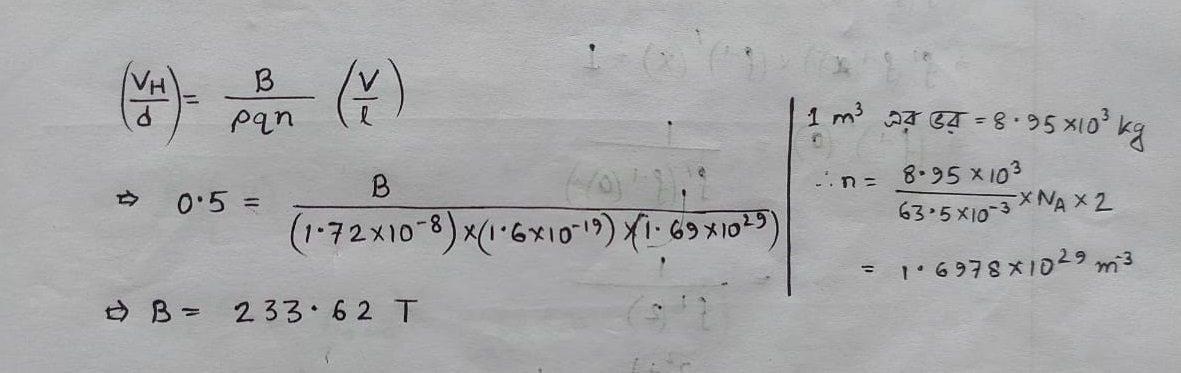 (V_H/d) = B/ρqn (V/l)
⇒ 0.5 = B/(1.72×10^-8)×(1.6×10^-19)×(1.69×10^29)
⇒ B = 233.62 T
1 m³ এর ভর = 8.95×10³ kg
∴ n = 8.95×10³/63.5×10^-3 × N_A × 2
= 1.6978×10^29 m^-3